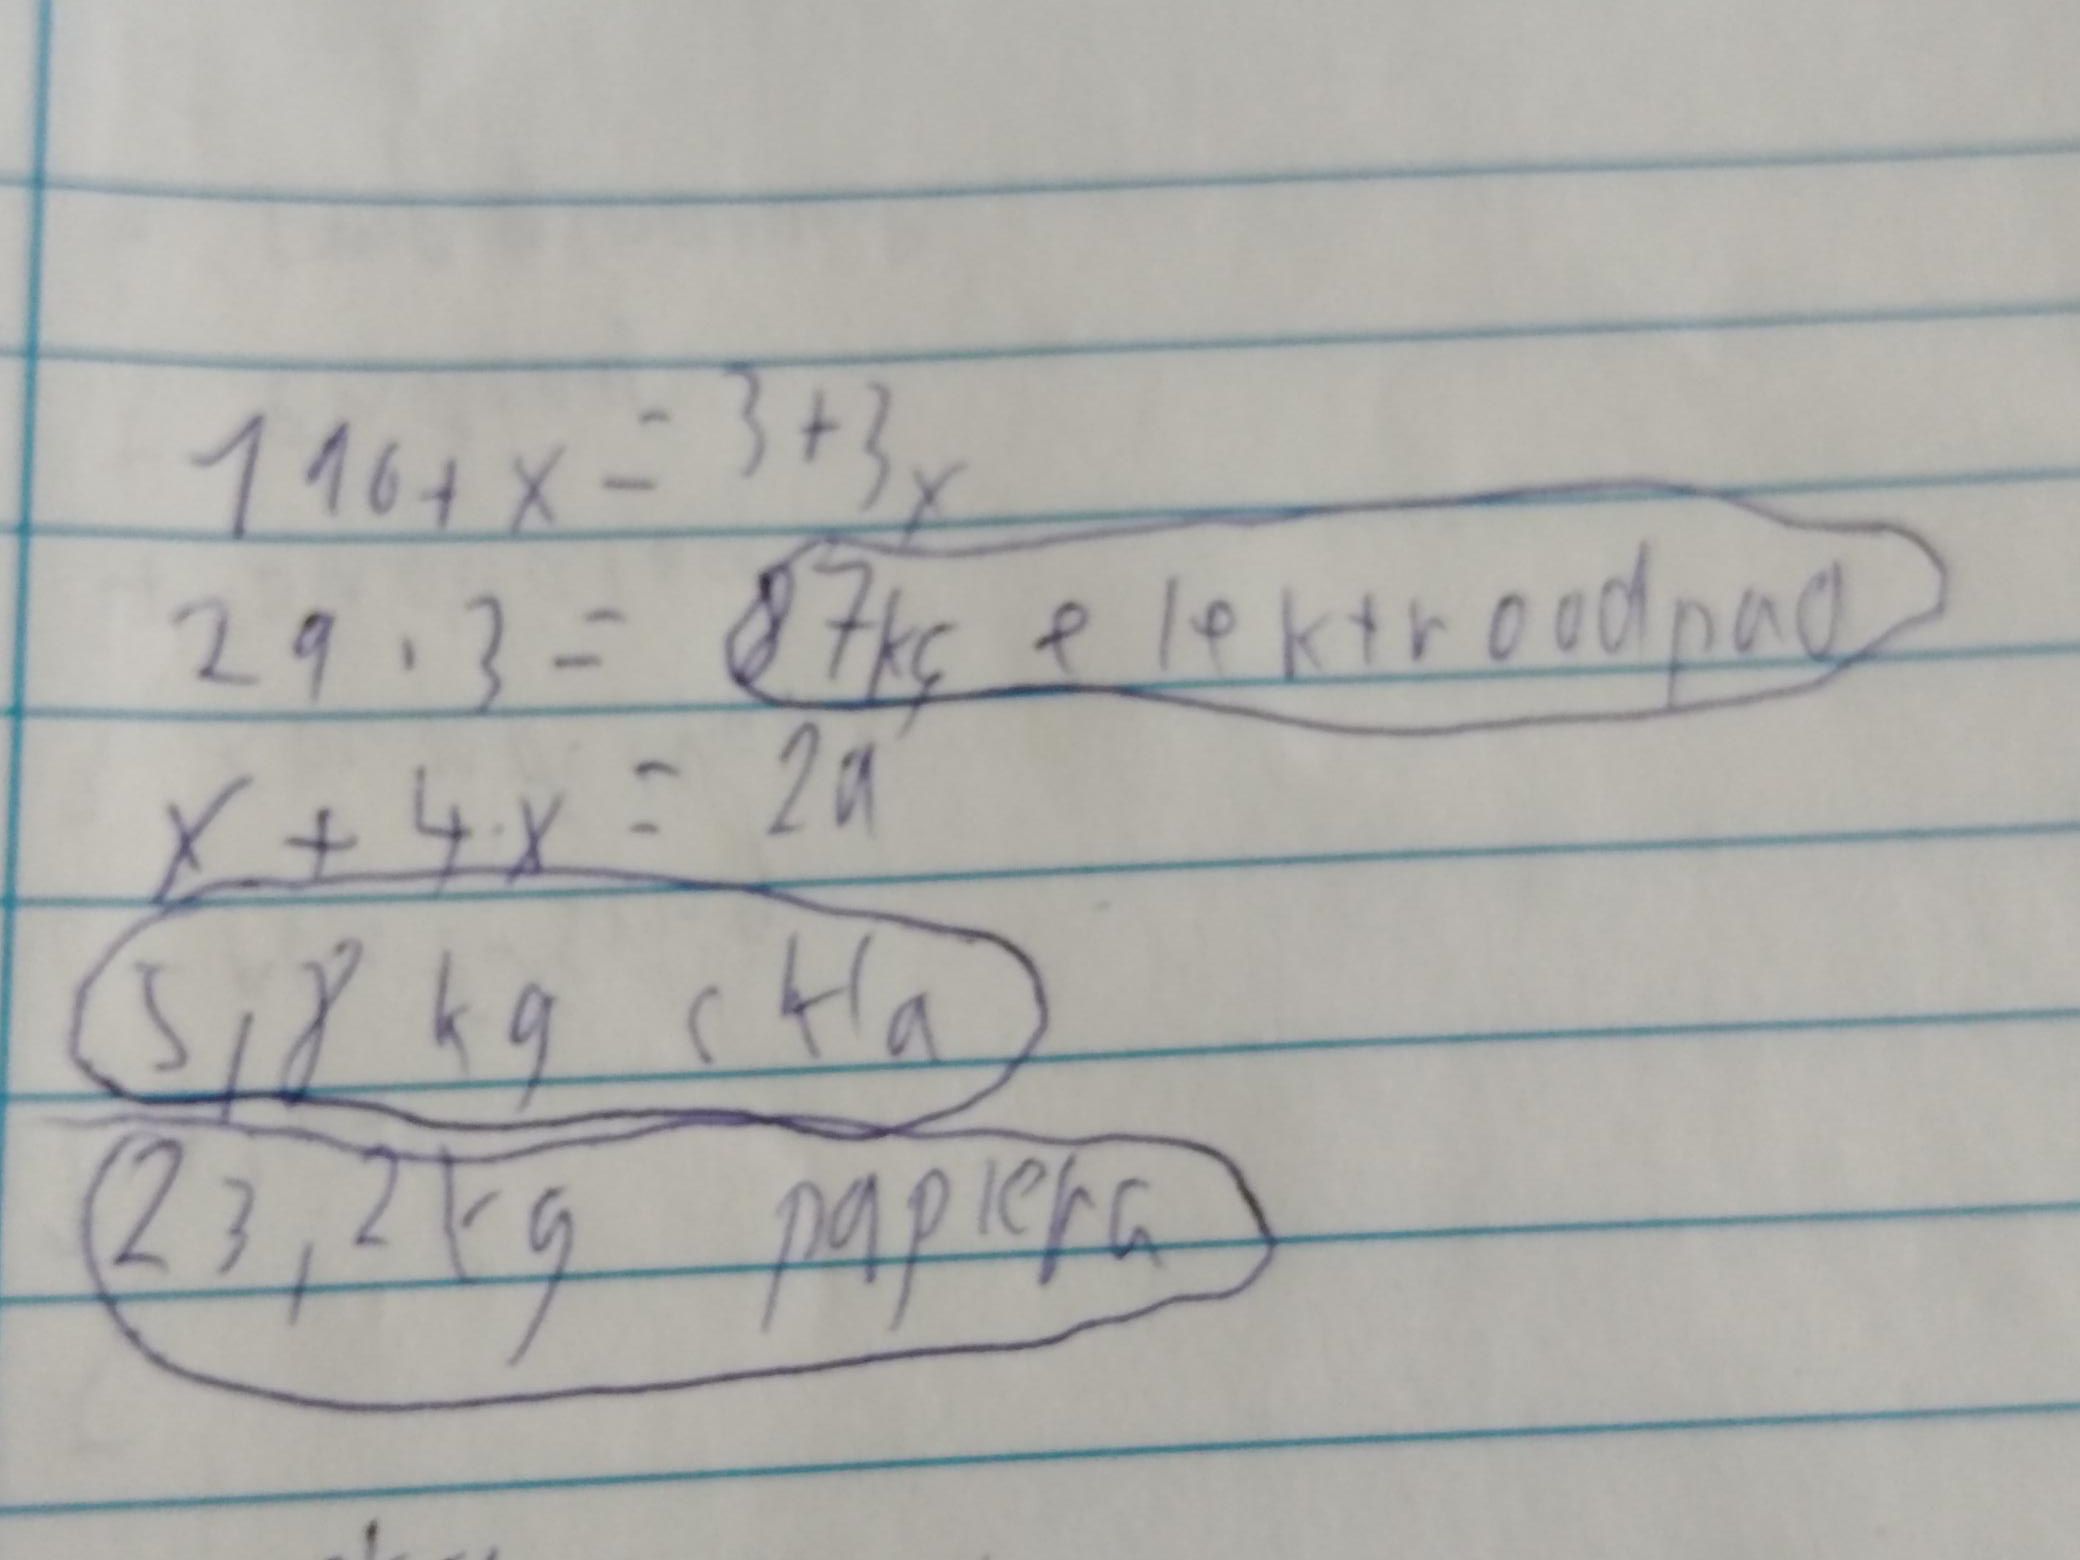 116+x = 3+3x
29 . 3 = 87kg elektroodpad
x + 4.x = 29
5,8 kg skla
23,2kg papiera